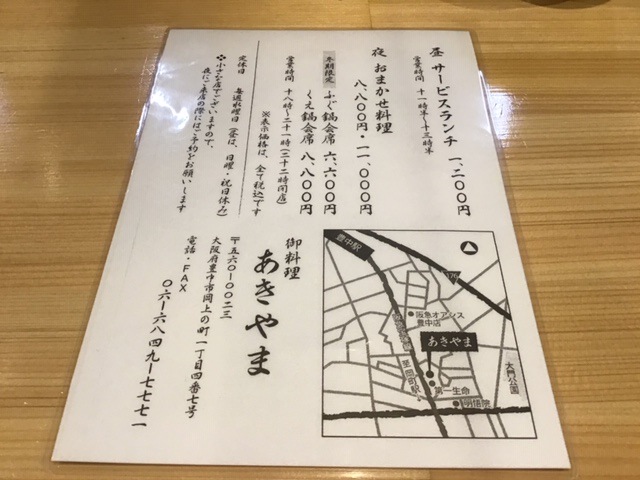 昼 サービスランチ 一、二〇〇円
営業時間 十一時半〜十三時半
夜 おまかせ料理
八、八〇〇円・一一、〇〇〇円
冬期限定 ふぐ鍋会席 六、六〇〇円
くえ鍋会席 八、八〇〇円
営業時間 十八時〜二十一時(二十二時閉店)
※表示価格は、全て税込です
定休日 毎週水曜日(昼は、日曜・祝日休み)
❖小さな店でございますので、
夜にご来店の際にはご予約をお願いします
御料理
あきやま
〒五六〇-〇〇二三
大阪府豊中市岡上の町一丁目四番七号
電話・FAX
〇六-六八四九-七七七一
豊中駅
176
阪急オアシス
豊中店
あきやま
至岡町駅
第一生命
大門公園